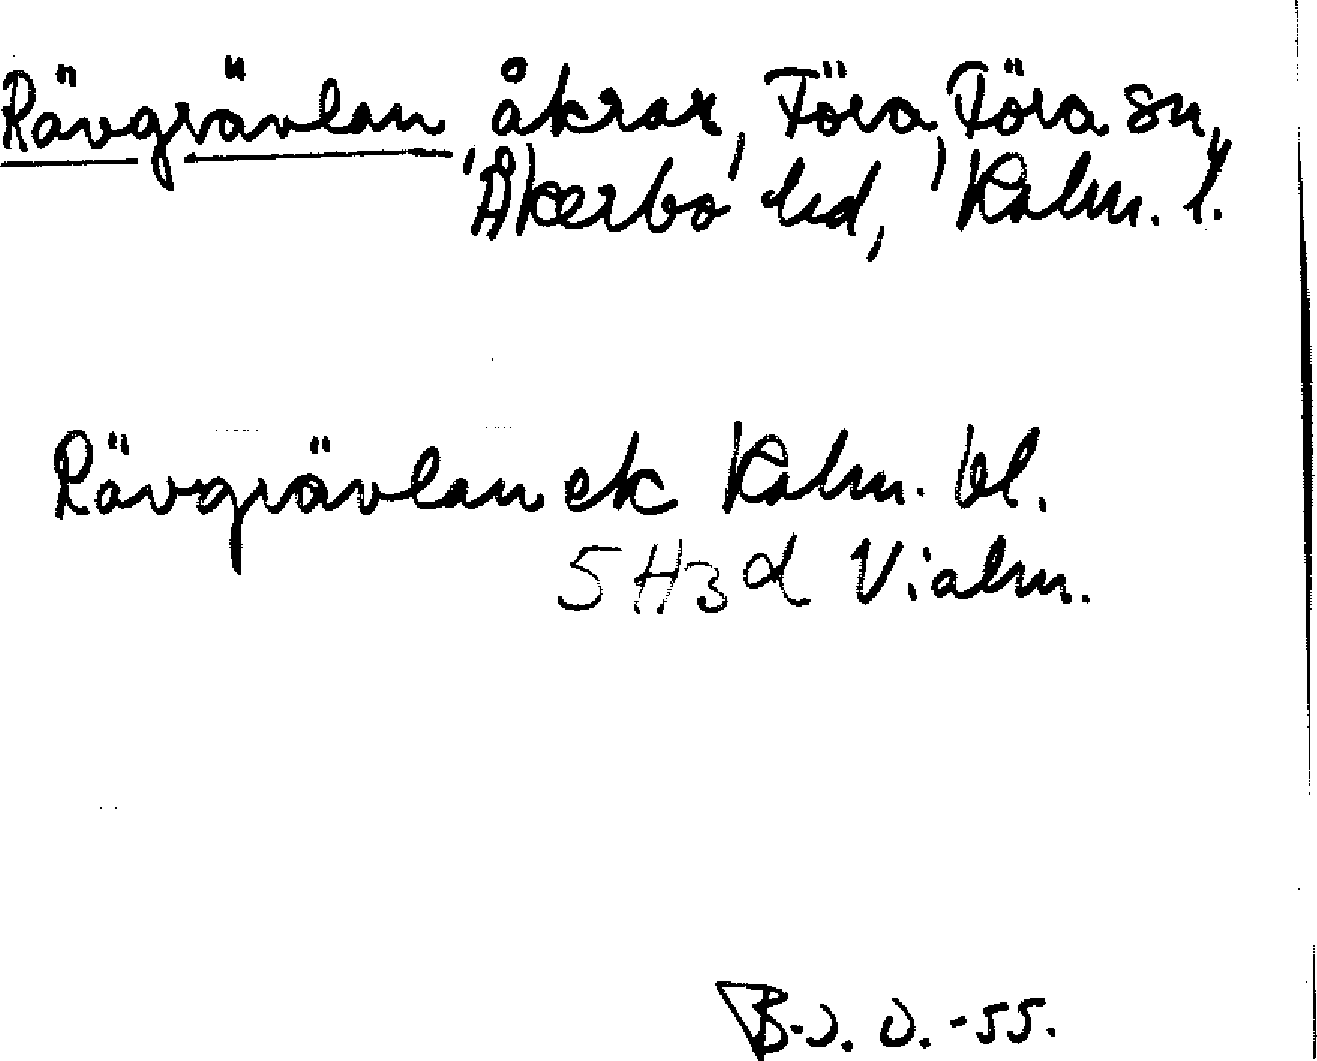 Rävgrävlan, åkrar, Föra, Föra sn,
Åkerbo hd, Kalm. l.
Rävgrävlan ek Kalm. bl.
5 H3 d Vialm.
B-J. O. -55.